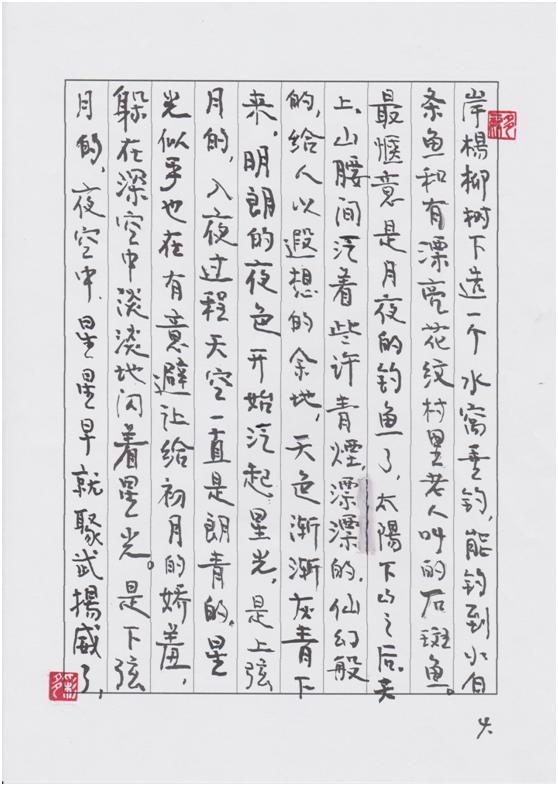 岸楊柳树下选一个水窝垂钓，能钓到小白
条鱼和有漂亮花纹村里老人叫的石斑鱼。
最惬意是月夜的钓鱼了，太陽下山之后。天
上、山腰间泛着些许青煙，漂漂的，仙幻般
的，给人以遐想的余地，天色渐渐灰青下
来。明朗的夜色开始泛起星光，是上弦
月的，入夜过程天空一直是朗青的。星
光似乎也在有意避让给初月的娇羞，
躲在深空中淡淡地闪着星光。是下弦
月的，夜空中，星星早就聚武揚威了，
4.